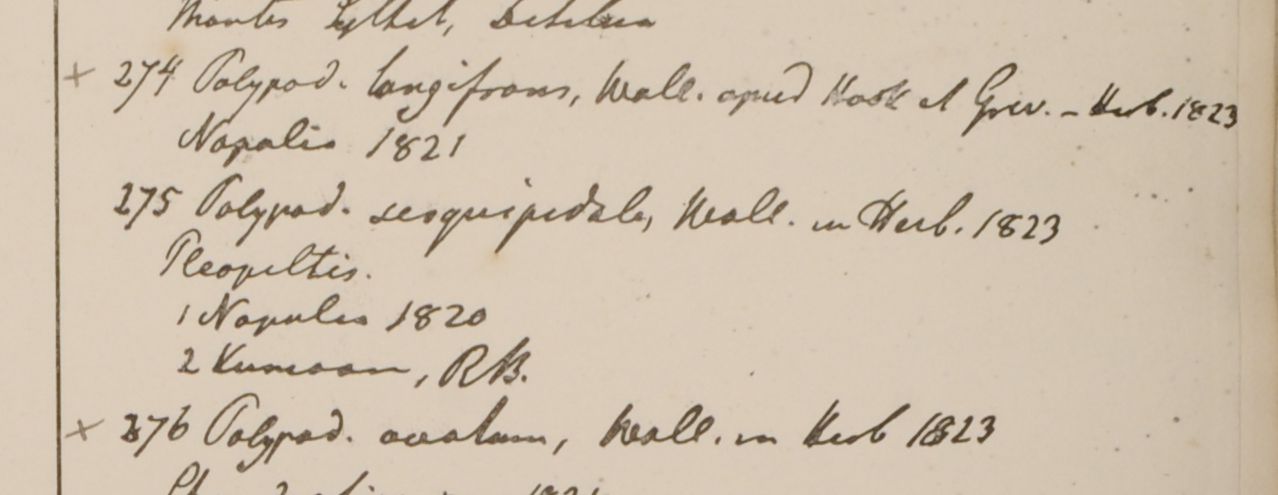 Montes Sylhet,
+ 274 Polypod. longifrons, Wall. apud Hook et Grev. – Herb. 1823
Napalia 1821
275 Polypod. sesquipedale, Wall. in Herb. 1823
Pleopeltis.
1 Napalia 1820
2 Kumaon, RB.
+ 276 Polypod. ovatum, Wall. in Herb 1823